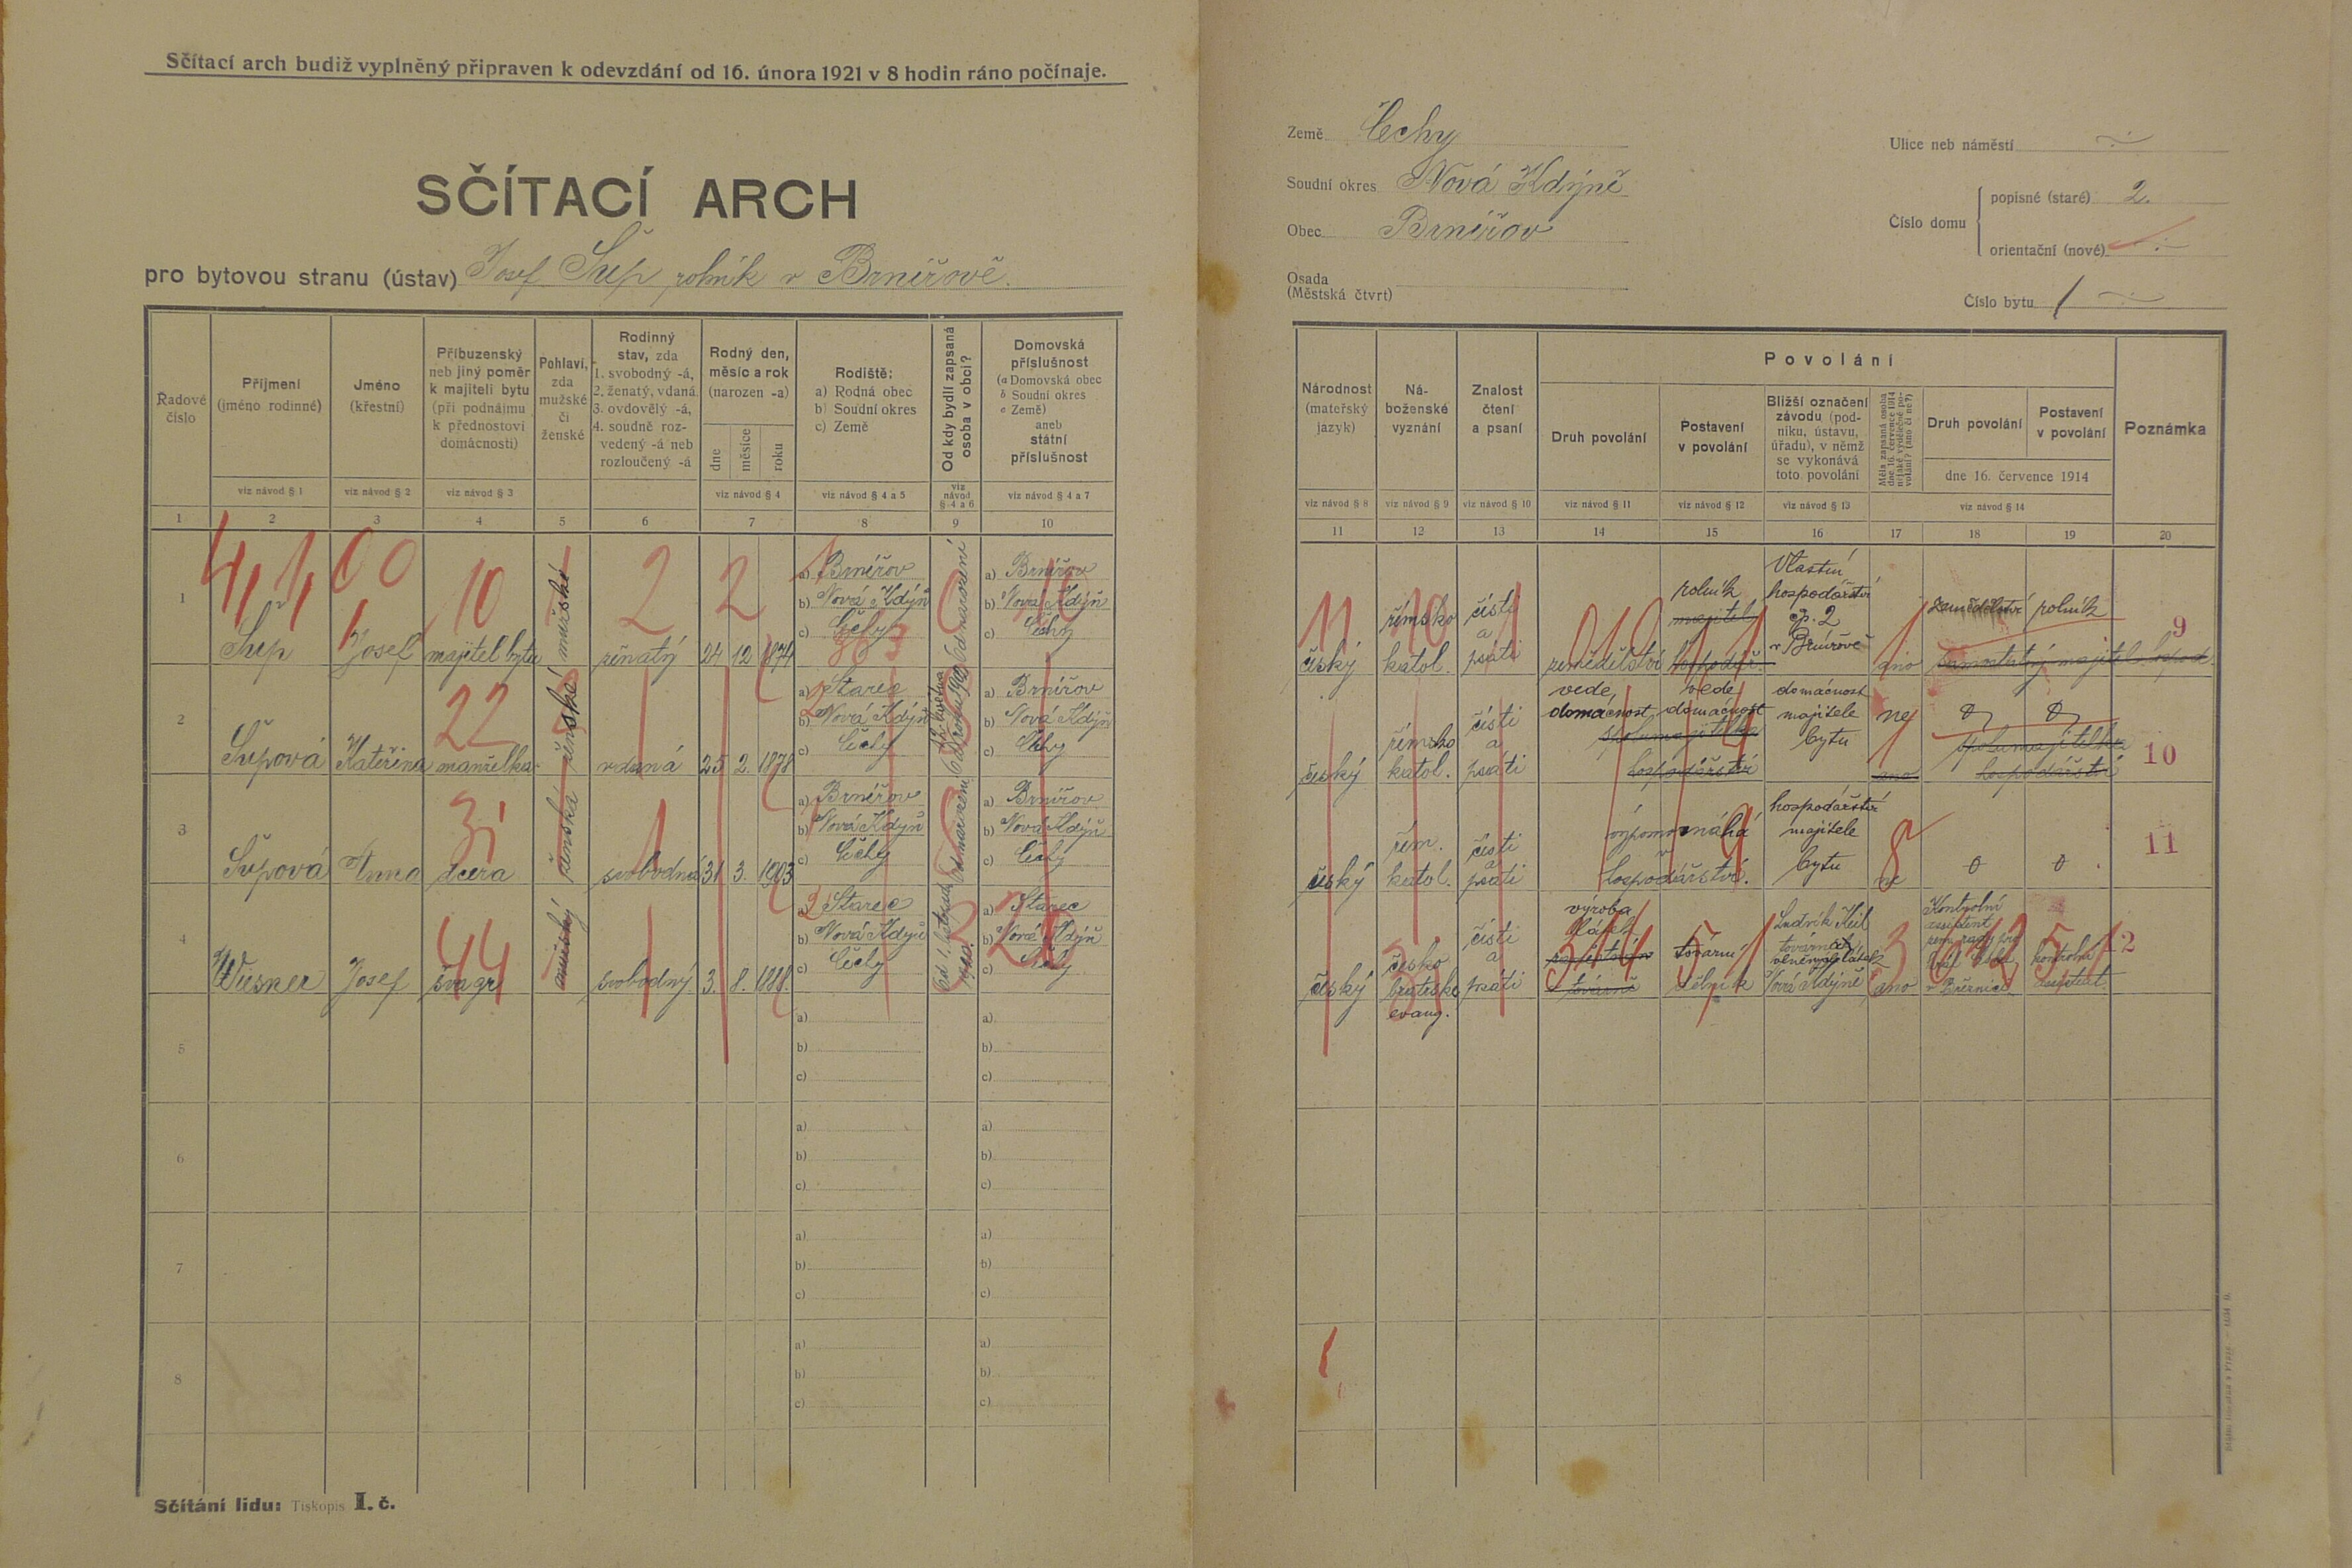 Sčítací arch budiž vyplněný připraven k odevzdání od 16. února 1921 v 8 hodin ráno počínaje.
SČÍTACÍ ARCH
pro bytovou stranu (ústav) Josef Šup rolník v Brnířově.
Řadové číslo
Příjmení (jméno rodinné)
Jméno (křestní)
Příbuzenský neb jiný poměr k majiteli bytu (při podnájmu k přednostovi domácnosti)
Pohlaví, zda mužské či ženské
Rodinný stav, zda 1. svobodný -á, 2. ženatý, vdaná 3. ovdovělý -á, 4. soudně rozvedený -á neb rozloučený -á
Rodný den, měsíc a rok (narozen -a)
dne
měsíce
roku
Rodiště: a) Rodná obec b) Soudní okres c) Země
Od kdy bydlí zapsaná osoba v obci?
Domovská příslušnost (a Domovská obec b Soudní okres c Země) aneb státní příslušnost
viz návod § 1
viz návod § 2
viz návod § 3
viz návod § 4
viz návod § 4 a 5
viz návod § 4 a 6
viz návod § 4 a 7
1 2 3 4 5 6 7 8 9 10
1 Šup Josef majitel bytu mužské ženatý 24 12 1874
a) Brnířov
b) Nová Kdýň
c) Čechy
Od narození
a) Brnířov
b) Nová Kdýň
c) Čechy
2 Šupová Kateřina manželka ženská vdaná 25 2. 1878
a) Starec
b) Nová Kdýň
c) Čechy
a) Brnířov
b) Nová Kdýň
c) Čechy
3 Šupová Anna dcera ženská svobodná 31 3. 1903
a) Brnířov
b) Nová Kdýň
c) Čechy
Od narození
a) Brnířov
b) Nová Kdýň
c) Čechy
4 Wiesner Josef švagr mužský svobodný 3. 8. 1888.
a) Starec
b) Nová Kdýň
c) Čechy
a) Starec
b) Nová Kdýň
c) Čechy
5
a)
b)
c)
a)
b)
c)
6
a)
b)
c)
a)
b)
c)
7
a)
b)
c)
a)
b)
c)
8
a)
b)
c)
a)
b)
c)
Sčítání lidu: Tiskopis I. č.
Země Čechy
Soudní okres Nová Kdýně
Obec Brnířov
Osada (Městská čtvrt)
Ulice neb náměstí
Číslo domu
popisné (staré) 2.
orientační (nové)
Číslo bytu 1
Národnost (mateřský jazyk)
Náboženské vyznání
Znalost čtení a psaní
Povolání
Druh povolání
Postavení v povolání
Bližší označení závodu (podniku, ústavu, úřadu), v němž se vykonává toto povolání
Měla zapsaná osoba dne 16. července 1914 nějaké výdělečné povolání? (ano či ne?)
Druh povolání
Postavení v povolání
dne 16. července 1914
Poznámka
viz návod § 8
viz návod § 9
viz návod § 10
viz návod § 11
viz návod § 12
viz návod § 13
viz návod § 14
11 12 13 14 15 16 17 18 19 20
český
římsko katol.
čísti a psáti
zemědělství
rolník
majitel hospodář.
Vlastní hospodářství čp. 2 v Brnířově
ano
zemědělství
rolník
samostatný majitel hospod.
9
český
římsko katol.
čísti a psáti
vede domácnost
vede domácnost
spolumajitelka hospodářství
domácnost majitele bytu
ne
ano
0
0
spolumajitelka hospodářství
10
český
řím. katol.
čísti a psáti
vypomáhá v hospodářství.
hospodářství majitele bytu
ne
0
0
11
český
česko bratrské evang.
čísti a psáti
výroba látek
tovární dělník
Ludvík Keil továrna vlněných látek Nová Kdýně
ano
Kontrolní assistent
v Březnici
kontrolní assistent
12